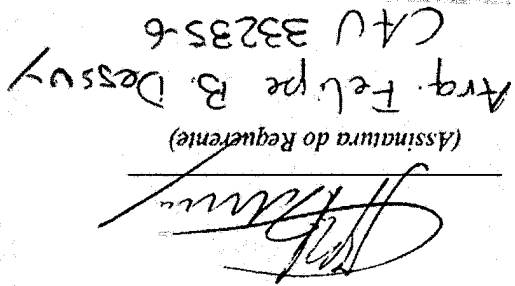 (Assinatura do Requerente)
Arq. Felipe B. Dessuy
CAU 33235-6